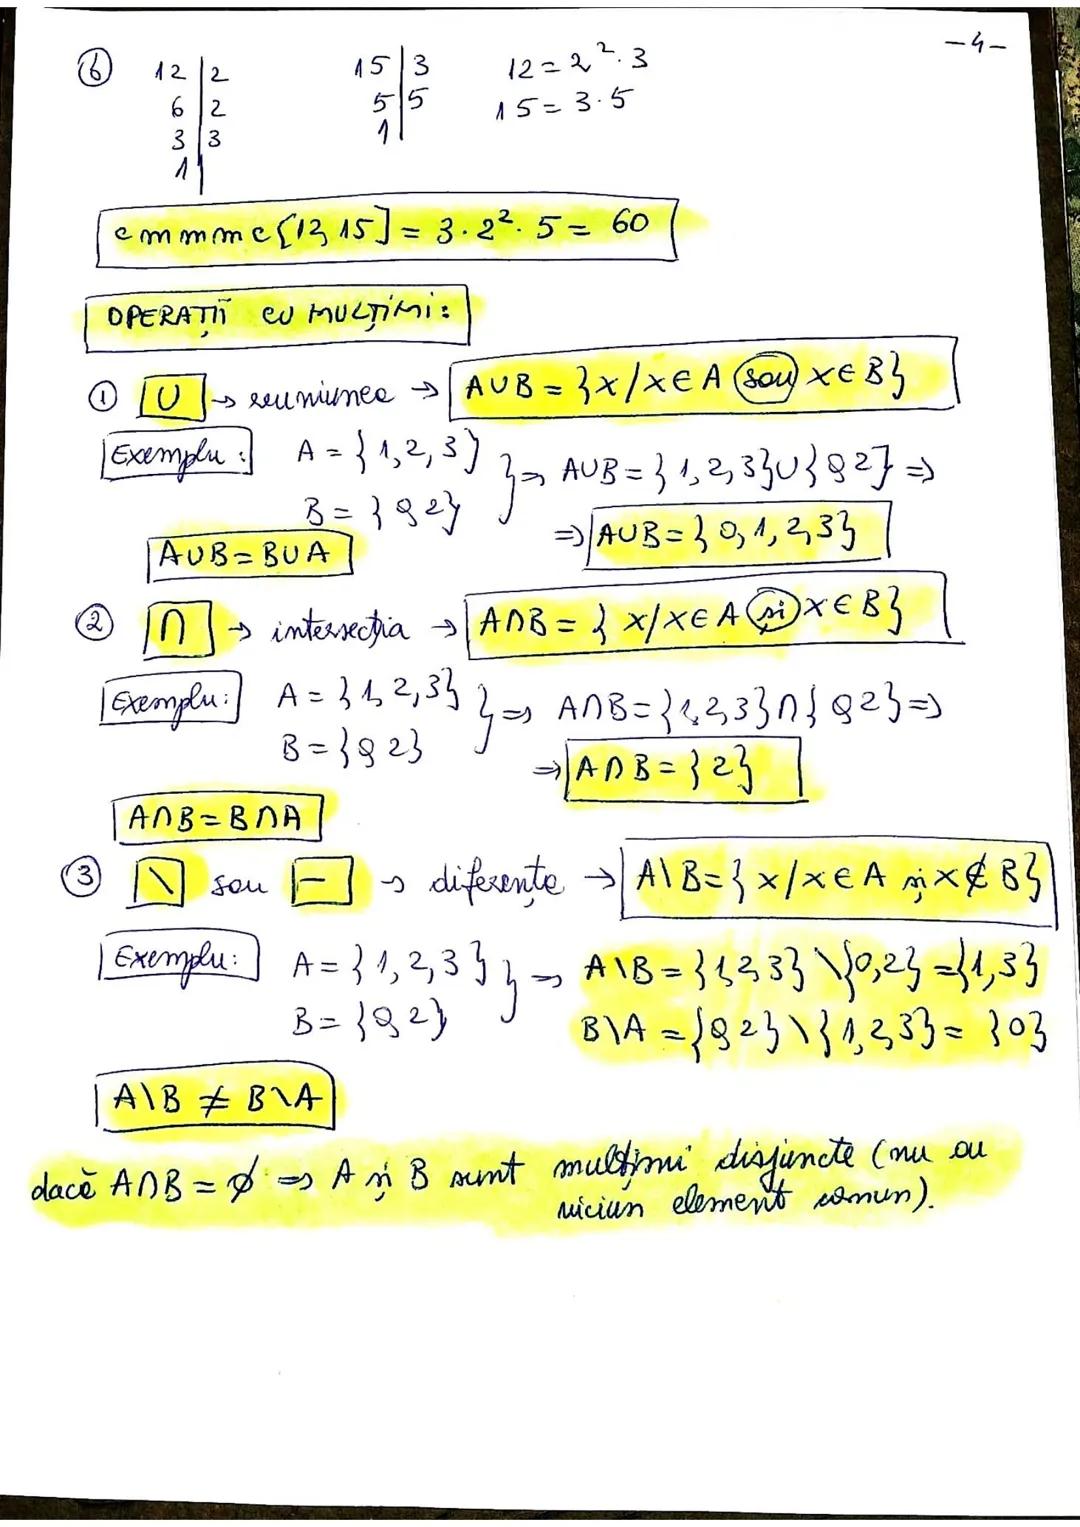 -4-
⑥ 12 | 2   15 | 3   12 = 2². 3
6 | 2   5 | 5   15 = 3.5
3 | 3   1 |
1 |
cmmmc [12, 15] = 3 . 2² . 5 = 60
OPERAȚII CU MULȚIMI:
① U → reuniunea → A∪B = {x/x∈A sau x∈B}
Exemplu: A = {1,2,3}
B = {0,2} } ⇒ A∪B = {1,2,3}∪{0,2} ⇒
⇒ A∪B = {0,1,2,3}
A∪B = B∪A
② ∩ → intersecția → A∩B = {x/x∈A și x∈B}
Exemplu: A = {1,2,3}
B = {0,2} } ⇒ A∩B = {1,2,3}∩{0,2} ⇒
⇒ A∩B = {2}
A∩B = B∩A
③ \ sau - → diferența → A\B = {x/x∈A și x∉B}
Exemplu: A = {1,2,3} } ⇒ A\B = {1,2,3}\{0,2} = {1,3}
B = {0,2} B\A = {0,2}\{1,2,3} = {0}
A\B ≠ B\A
dacă A∩B = ∅ ⇒ A și B sunt mulțimi disjuncte (nu au
niciun element comun).